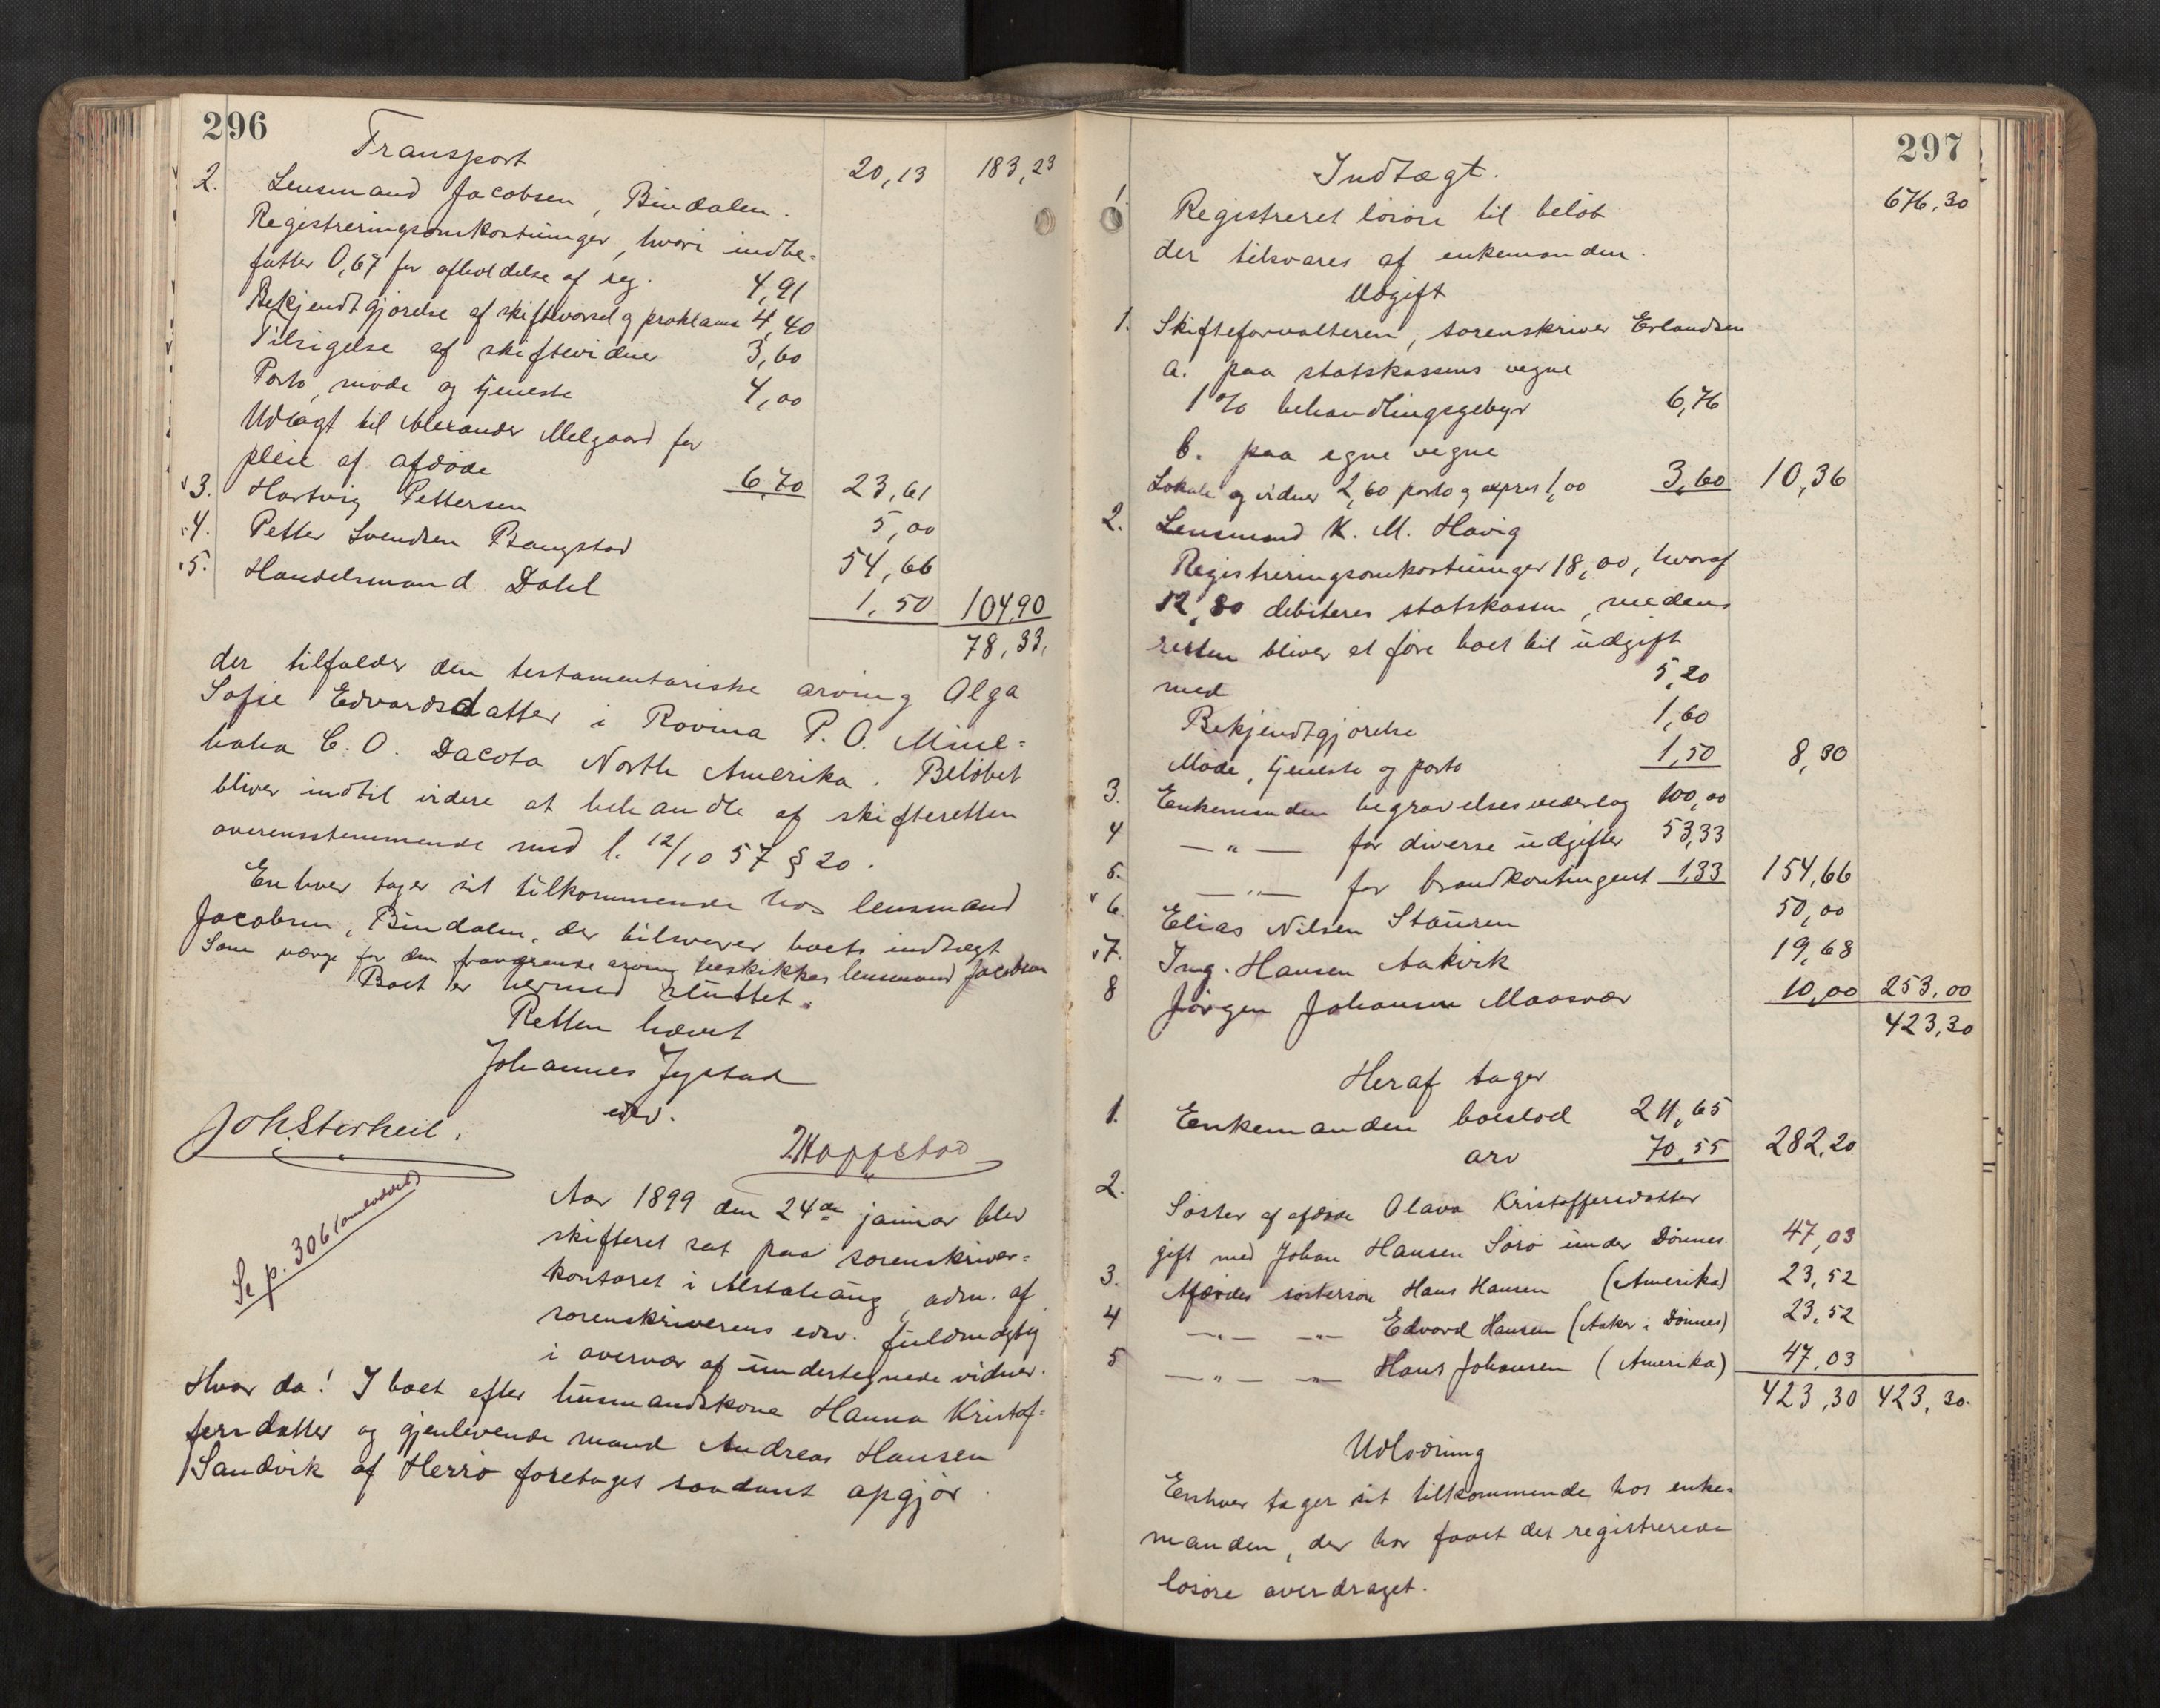 296
Transport 20,13 183,23
2. Lensmand Jacobsen, Bindalen.
Registreringsomkostninger, hvori indbe-
fattet 0,67 for afholdelse af reg. 4,91
Bekjendtgjørelse af skiftevarsel og proklama 4,40
Tilsigelse af skiftevidner 3,60
Porto, møde og tjeneste 4,00
Udlagt til Alexander Melgaard for
pleie af afdøde 6,70 23,61
3. Hartvig Pettersen 5,00
4. Petter Svendsen Bangstad 54,66
5. Handelsmand Dahl 1,50 104,90
78,33,
der tilfalder den testamentariske arving Olga
Sofie Edvardsdatter i Rovina P. O. Mine-
haha C. O. Dacota North Amerika. Beløbet
bliver indtil videre at behandle af skifteretten
overensstemmende med l. 12/10 57 § 20.
Enhver tager sit tilkommende hos lensmand
Jacobsen, Bindalen, der tilsvarer boets indtægt
Som værge for den fraværende arving beskikkes lensmand Jacobsen
Boet er hermed sluttet.
Retten hævet
Johannes Jystad
edsv.
Joh. Storheil.
J. Hoppstad
Se p. 306 (omlodded)
Aar 1899 den 24de januar blev
skifteret sat paa sorenskriver-
kontoret i Alstahaug, adm. af
sorenskriverens edsv. fuldmægtig
i overvær af undertegnede vidner.
Hvor da! I boet efter husmandskone Hanna Kristof-
fersdatter og gjenlevende mand Andreas Hansen
Sandvik af Herrø foretages saadant opgjør.
297
Indtægt.
1. Registreret løsøre til beløb 676,30
der tilsvares af enkemanden.
Udgift
1. Skifteforvalteren, sorenskriver Erlandsen
a. paa statskassens vegne
1 % behandlingsgebyr 6,76
b. paa egne vegne
Lokale og vidner 2,60 porto og expres 1,00 3,60 10,36
2. Lensmand K. M. Havig
Registreringsomkostninger 18,00, hvoraf
12,80 debiteres statskassen, medens
resten bliver at føre boet til udgift
med 5,20
Bekjendtgjørelse 1,60
Møde, tjeneste og porto 1,50 8,30
3. Enkemanden begravelsesvederlag 100,00
4 — " — for diverse udgifter 53,33
5. — " — for brandkontingent 1,33 154,66
6. Elias Nilsen Stauren 50,00
7. Ing. Hansen Aakvik 19,68
8 Jørgen Johansen Maasvær 10,00 253,00
423,30
Heraf tager
1. Enkemanden boeslod 211,65
arv 70,55 282,20
2. Søster af afdøde Olava Kristoffersdatter
gift med Johan Hansen Sørø under Dønnes. 47,03
3. Afdødes søstersøn Hans Hansen (Amerika) 23,52
4 — " — — " — Edvard Hansen (Aaker i Dønnes) 23,52
5 — " — — " — Hans Johansen (Amerika) 47,03
423,30 423,30.
Udlodning
Enhver tager sit tilkommende hos enke-
manden, der har faaet det registrerede
løsøre overdraget.